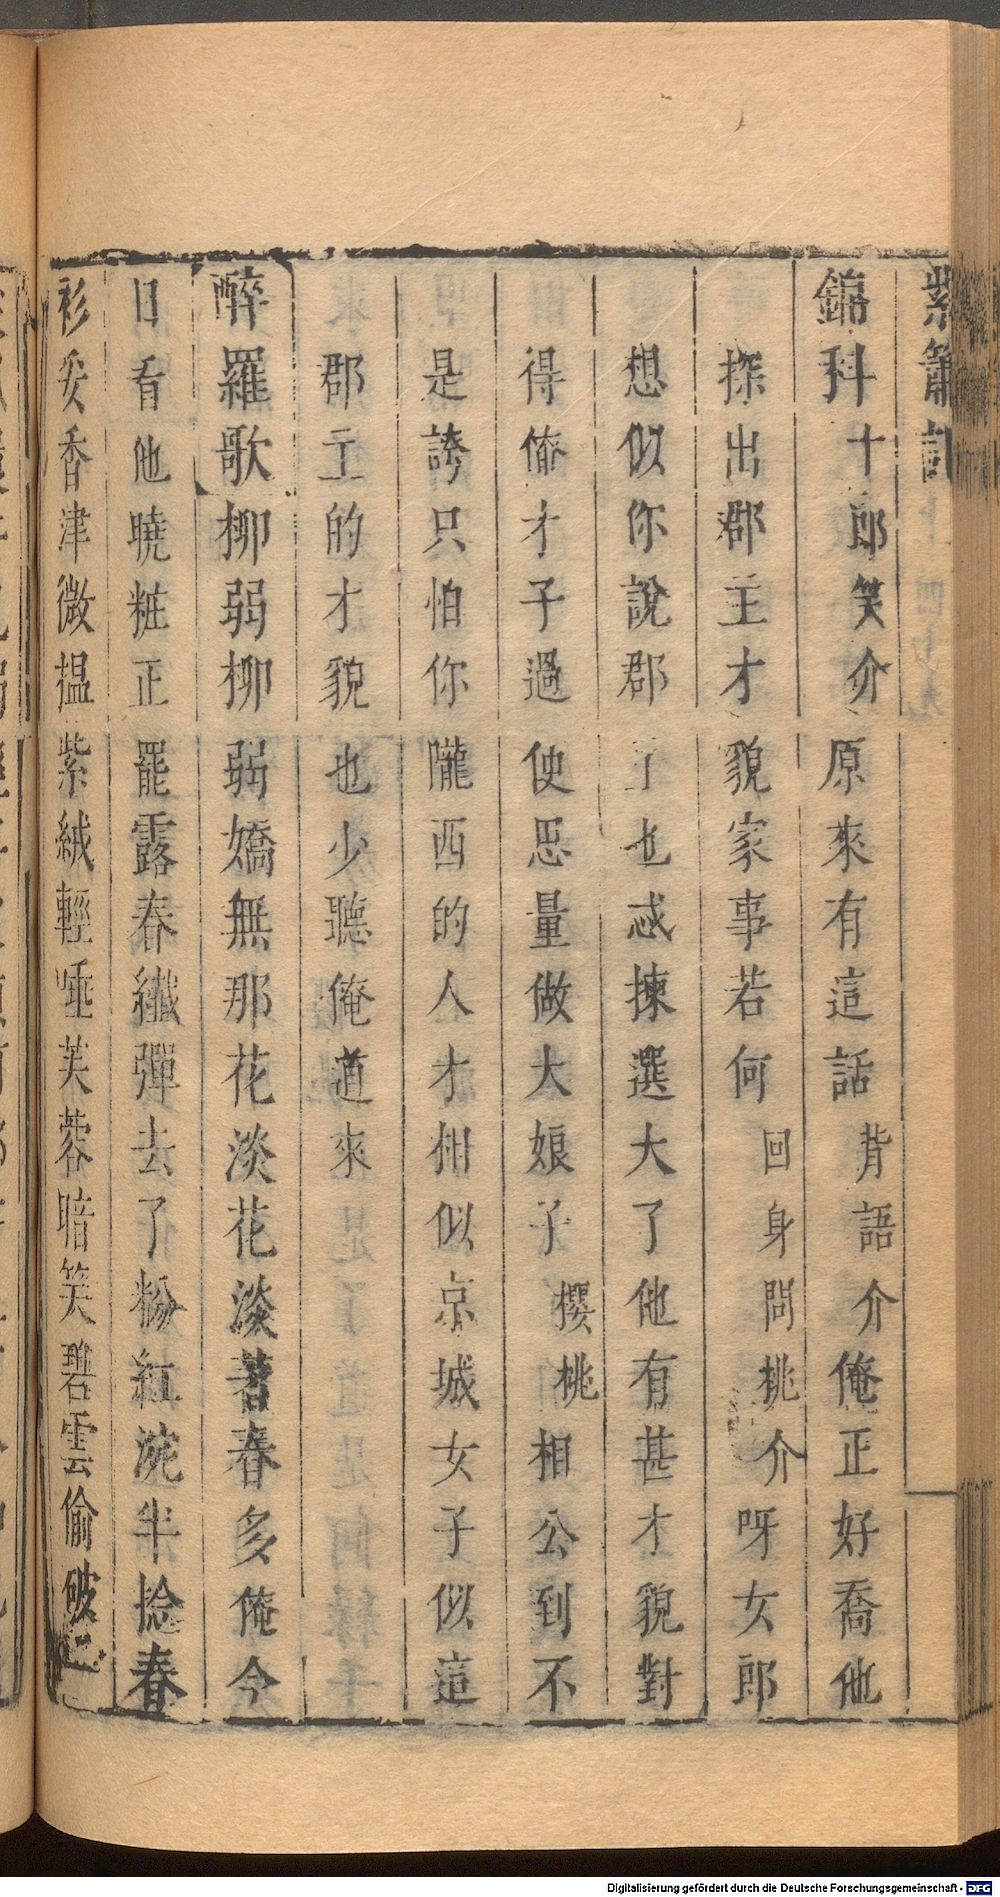 紫簫記
錦科十郎笑介原來有這話背語介俺正好喬他
探出郡主才貌家事若何回身問桃介呀女郎
想似你說郡了也忒揀選大了他有甚才貌對
得俺才子過使思量做大娘子櫻桃相公到不
是誇只怕你隴西的人才相似京城女子似這
郡主的才貌也少聽俺道來
醉羅歌柳弱柳弱嬌無那花淡花淡著春多俺今
日看他曉粧正罷露春纖彈去了粉紅涴半捻春
衫妥香津微搵紫絨輕唾芙蓉暗笑碧雲偷破
Digitalisierung gefördert durch die Deutsche Forschungsgemeinschaft - DFG